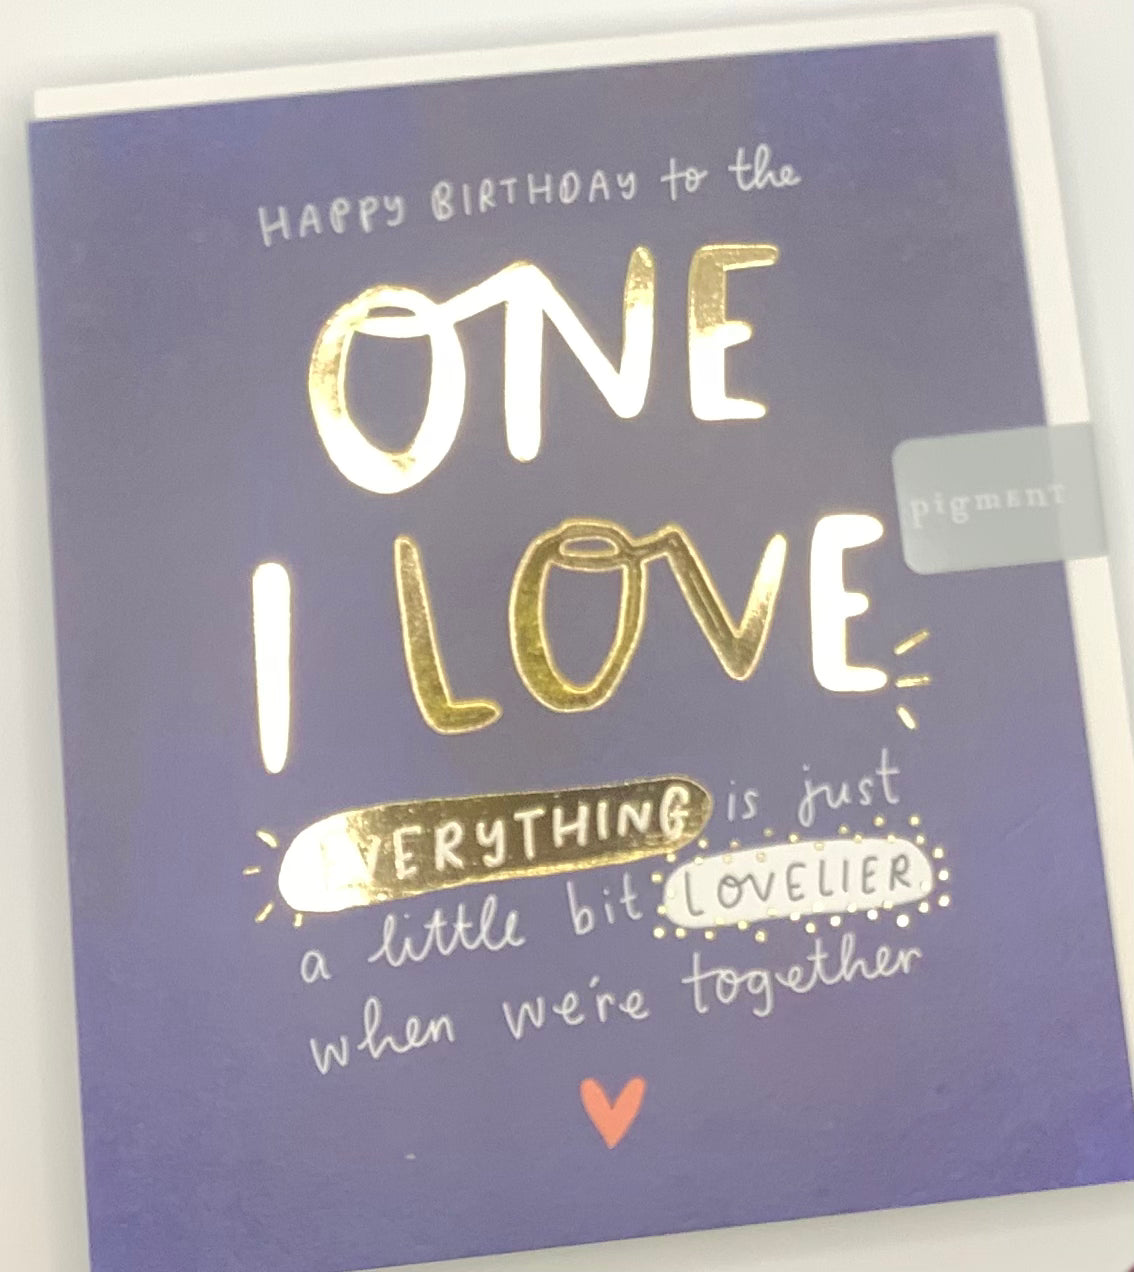 HAPPY BIRTHDAY to the
ONE
I LOVE
pigment
EVERYTHING is just
a little bit LOVELIER
when we're together